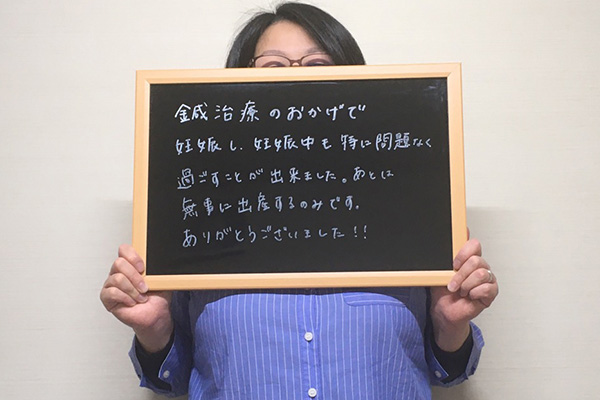 鍼治療のおかげで
妊娠し、妊娠中も特に問題なく
過ごすことが出来ました。あとは
無事に出産するのみです。
ありがとうございました!!